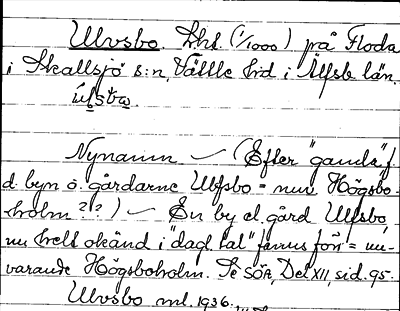 Ulvsbo. Lhs. (1/1000) på Floda
i Skallsjö s:n, Vättle hd i Älfsb. län.
úlsba.
Nynamn — (Efter "gamla" f.
d. byn o. gårdarne Ulfsbo = nuv. Högsbo-
holm??) — En by el. gård Ulfsbo,
nu helt okänd i "dagl. tal" fanns förr = nu-
varande Högsboholm. Se SOÄ, Del XII, sid. 95.
Ulvsbo ml. 1936.